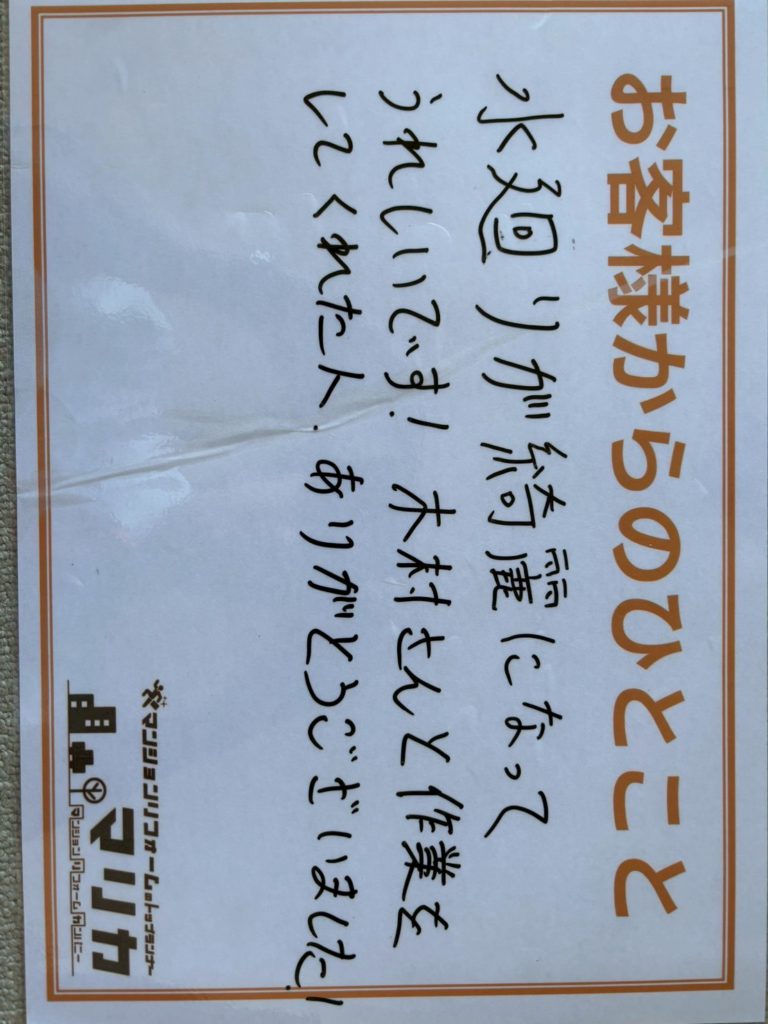 お客様からのひとこと
水廻りが綺麗になって
うれしいです! 木村さんと作業を
してくれた人、ありがとうございました!
マンションリフォームのトップランナー
マリカ
マンションリフォームカンパニー